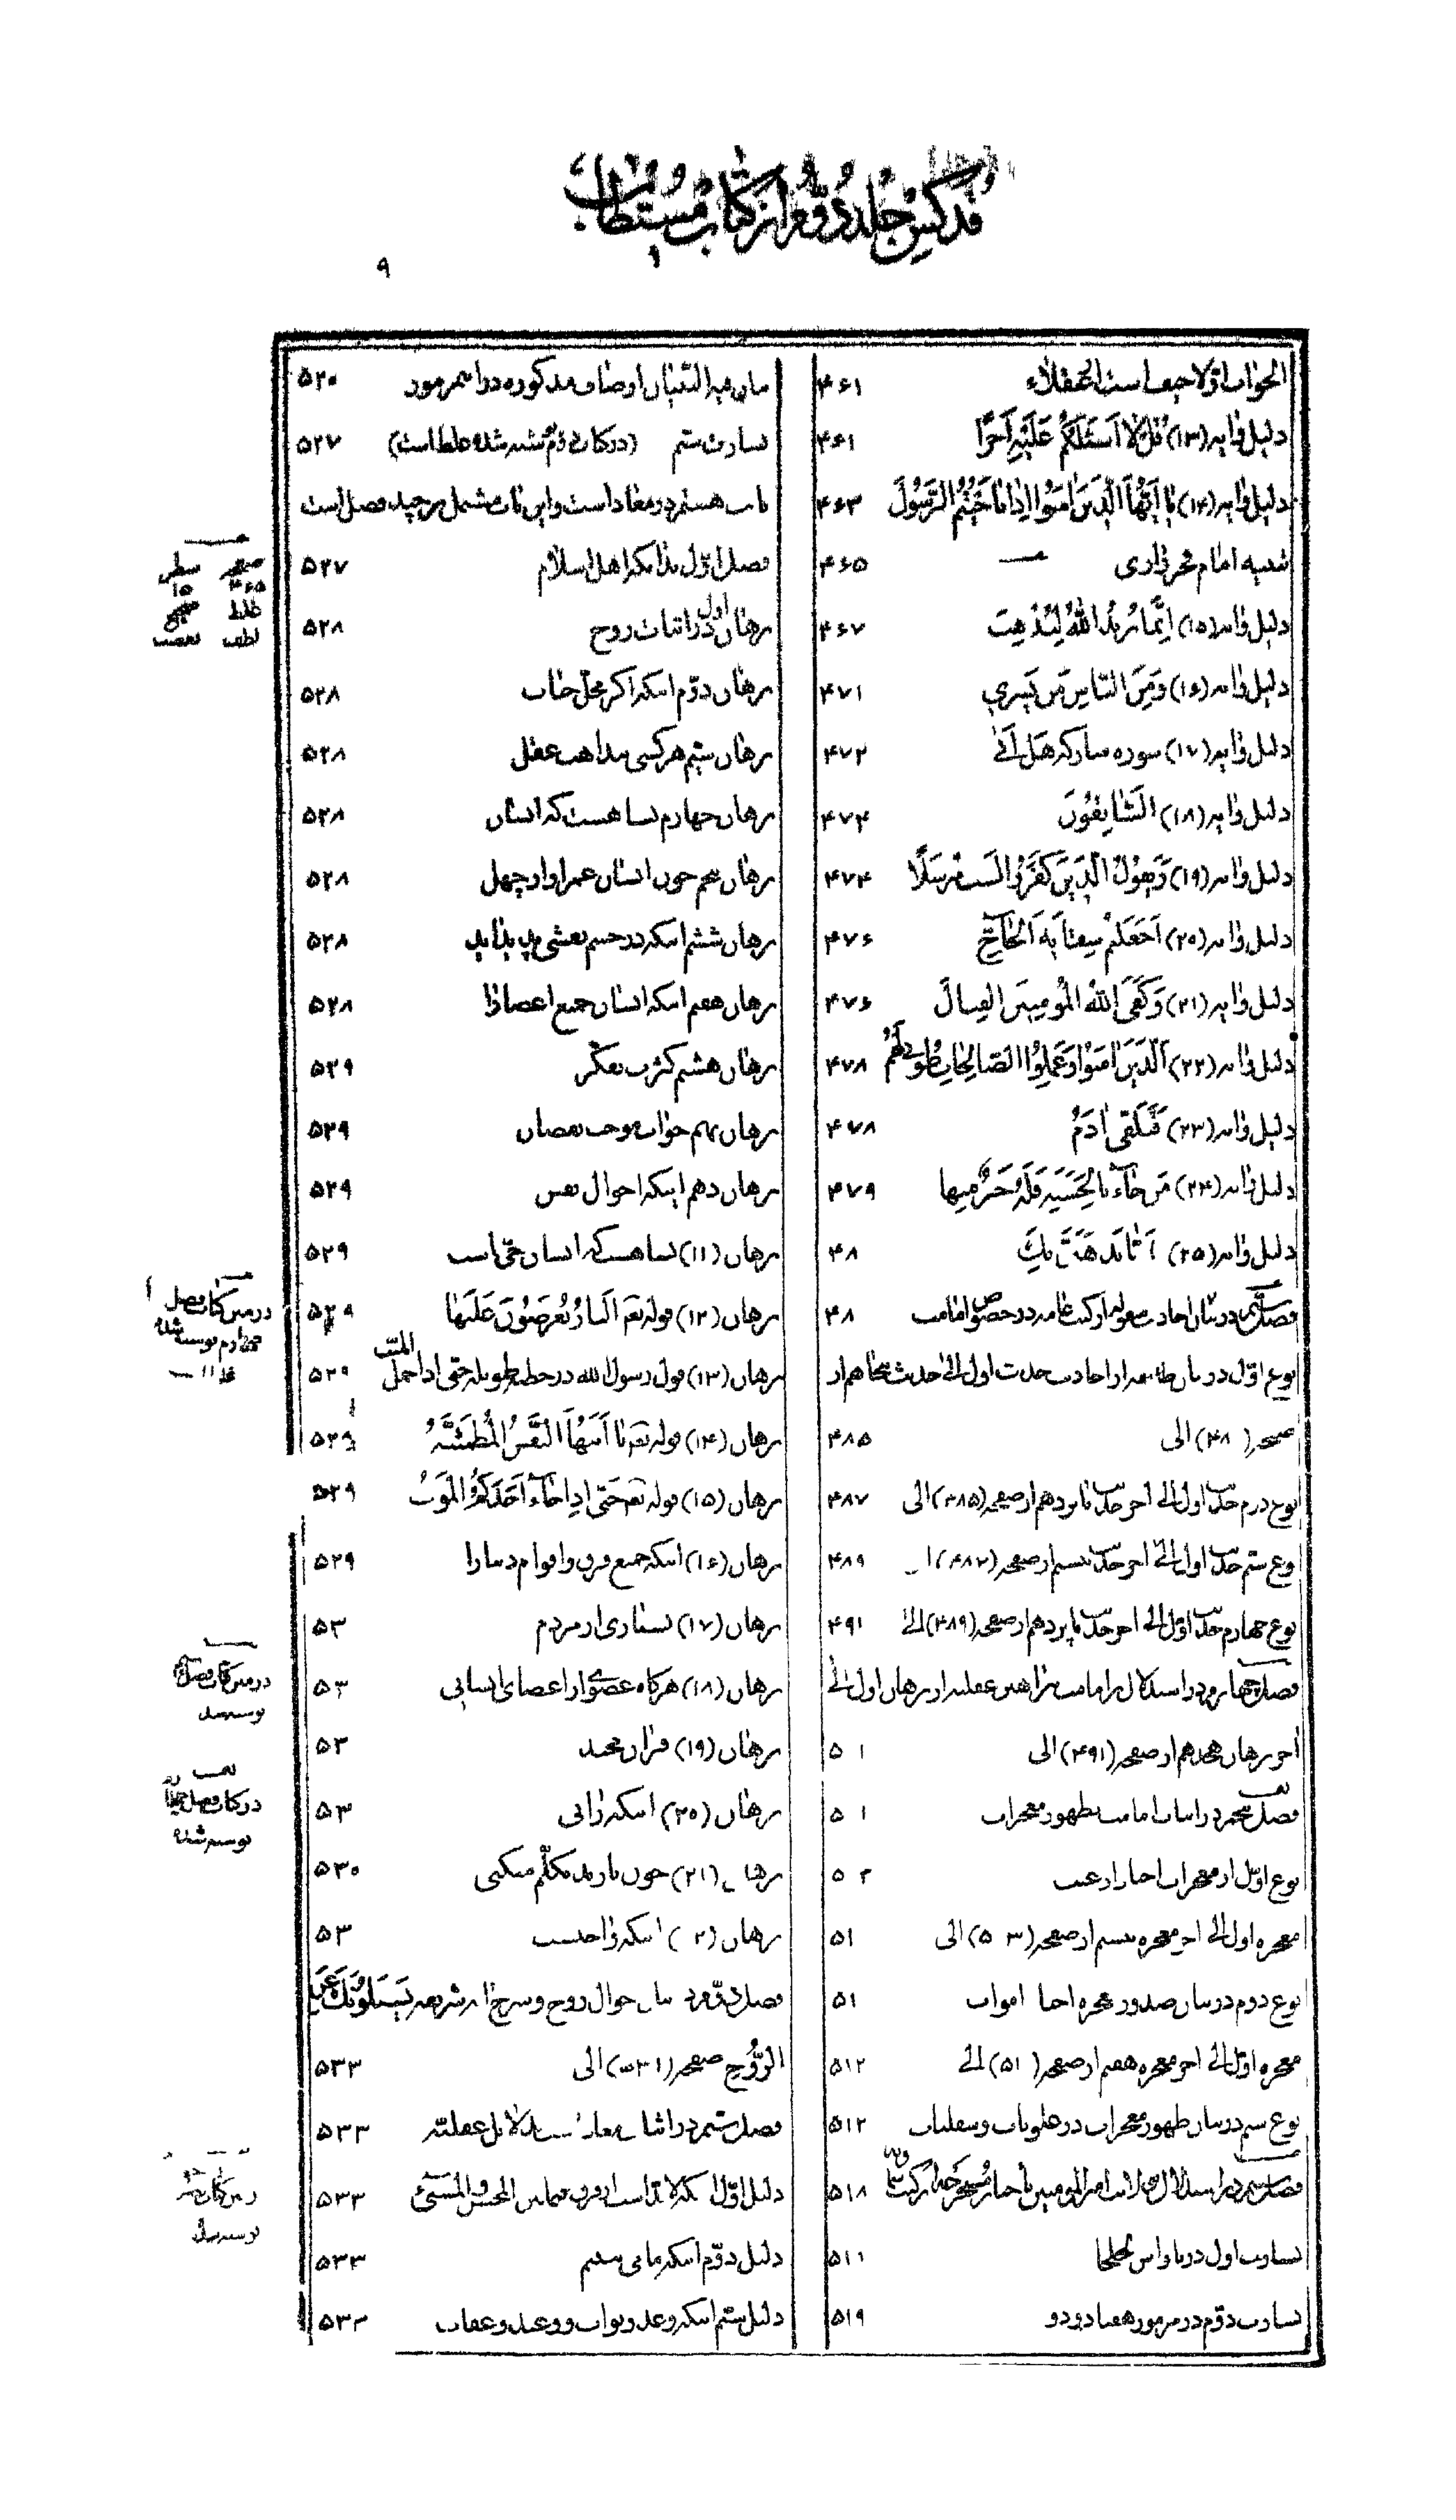 فهرس جلد دوم از کتاب مستطاب
۹
الجواب اولا جمعا است
۴۶۱
دلیل و آیه (۱۳) قل لا اسئلکم علیه اجرا
۴۶۱
دلیل و آیه (۱۴) یا ایها الذین امنوا اذا ناجیتم الرسول
۴۶۳
تنبیه امام فخر رازی
۴۶۵
دلیل و آیه (۱۵) انما یرید الله لیذهب
۴۶۷
دلیل و آیه (۱۶) و من الناس من یشری
۴۷۱
دلیل و آیه (۱۷) سوره مبارکه هل اتی
۴۷۲
دلیل و آیه (۱۸) السابقون
۴۷۴
دلیل و آیه (۱۹) و یقول الذین کفروا لست مرسلا
۴۷۴
دلیل و آیه (۲۰) اجعلتم سقایة الحاج
۴۷۶
دلیل و آیه (۲۱) و کفی الله المومنین القتال
۴۷۶
دلیل و آیه (۲۲) الذین امنوا و عملوا الصالحات طوبی لهم
۴۷۸
دلیل و آیه (۲۳) فتلقی ادم
۴۷۸
دلیل و آیه (۲۴) من جاء بالحسنة فله خیر منها
۴۷۹
دلیل و آیه (۲۵)
۴۸
فصل سیم در بیان احادیث منقوله از کتب عامه در خصوص امامت
۴۸
نوع اول در بیان احادیث حدیث اول الی حدیث پنجاهم از
صفحه (۴۸ ) الی
۴۸۵
نوع دوم حدیث اول الی آخر حدیث پانزدهم از صفحه (۴۸۵) الی
۴۸۷
نوع سیم حدیث اول الی آخر حدیث بیستم از صفحه (۴۸۷)
۴۸۹
نوع چهارم حدیث اول الی آخر حدیث پانزدهم از صفحه (۴۸۹) الی
۴۹۱
فصل چهارم در استدلال بر امامت ببراهین عقلیه از برهان اول الی
آخر برهان هجدهم از صفحه (۴۹۱) الی
۵ ۱
فصل پنجم در اثبات امامت بظهور معجزات
۵ ۱
نوع اول از معجزات اخبار از غیب
۵ ۲
معجزه اول الی آخر معجزه بیستم از صفحه (۵۰۳) الی
۵۱
نوع دوم در بیان صدور معجزه احیا اموات
۵۱
معجزه اول الی آخر معجزه هفتم از صفحه (۵۱ ) الی
۵۱۲
نوع سیم در بیان ظهور معجزات در علویات و سفلیات
۵۱۲
۵۱۸
بشارت اول
۵۱۱
بشارت دوم در مزمور هفتاد و دو
۵۱۹
اوصاف مذکوره در این مزمور
۵۲۰
بشارت سیم
۵۲۷
باب هشتم در معاد است و این باب مشتمل بر چند فصل است
فصل اول بدانکه اهل اسلام
۵۲۷
برهان اول در اثبات روح
۵۲۸
برهان دوم اینکه اگر محل
۵۲۸
برهان سیم هر کسی ببداهت عقل
۵۲۸
برهان چهارم بسا هست که انسان
۵۲۸
برهان پنجم چون انسان عمر او از چهل
۵۲۸
برهان ششم اینکه در جسم نقشی پدید
۵۲۸
برهان هفتم اینکه انسان جمیع اعضا را
۵۲۸
برهان هشتم کثرت تفکر
۵۲۹
برهان نهم خواب موجب نقصان
۵۲۹
برهان دهم اینکه احوال نفس
۵۲۹
برهان (۱۱) بسا هست که انسان حی است
۵۲۹
برهان (۱۲) قوله تعم النار یعرضون علیها
۵۲۹
برهان (۱۳) قول رسول الله در خطبه طویله حتی اذا حمل المیت
۵۲۹
برهان (۱۴) قوله تعم یا ایتها النفس المطمئنة
۵۲۹
برهان (۱۵) قوله تعم حتی اذا جاء احدکم الموت
۵۲۹
برهان (۱۶) اینکه جمیع فرق و اقوام دنیا را
۵۲۹
برهان (۱۷) بسیاری از مردم
۵۳
برهان (۱۸) هرگاه عضوی از اعضای انسانی
۵۳
برهان (۱۹) قران مجید
۵۳
برهان (۲۰) اینکه
۵۳
(۲۱) چون با زید تکلم میکنی
۵۳۰
برهان (۲ ) اینکه
۵۳
فصل دوم در بیان احوال روح و شرح آیه شریفه یسئلونک عن
الروح صفحه (۵۳۱) الی
۵۳۳
فصل سیم در اثبات معاد بدلایل عقلیه
۵۳۳
دلیل اول اینکه لابد است از فرق میانه المحسن و المسئ
۵۳۳
دلیل دوم اینکه ما می بینیم
۵۳۳
دلیل سیم اینکه وعد و ثواب و وعید و عقاب
۵۳۳
صفحه سطر
۴۶۵ ۱۵
غلط صحیح
در متن کتاب فصل
چهارم نوشته شده
غلط است
در متن کتاب فصل
در کتاب فصل
نوشته شده